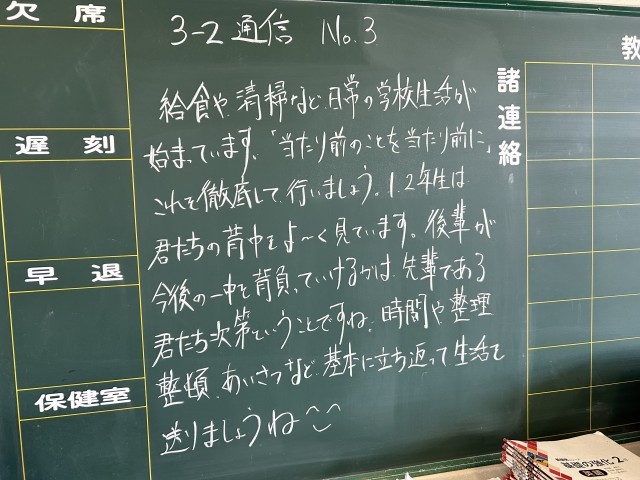 欠席
遅刻
早退
保健室
3-2 通信 No.3
給食や、清掃など、日常の学校生活が
始まっています。「当たり前のことを当たり前に」
これを徹底して行いましょう。1.2年生は
君たちの背中をよ〜く見ています。後輩が
今後の一中を背負っていけるかは、先輩である
君たち次第ということですね。時間や整理
整頓、あいさつなど、基本に立ち返って生活を
送りましょうね
諸連絡
教
基礎の強化 2